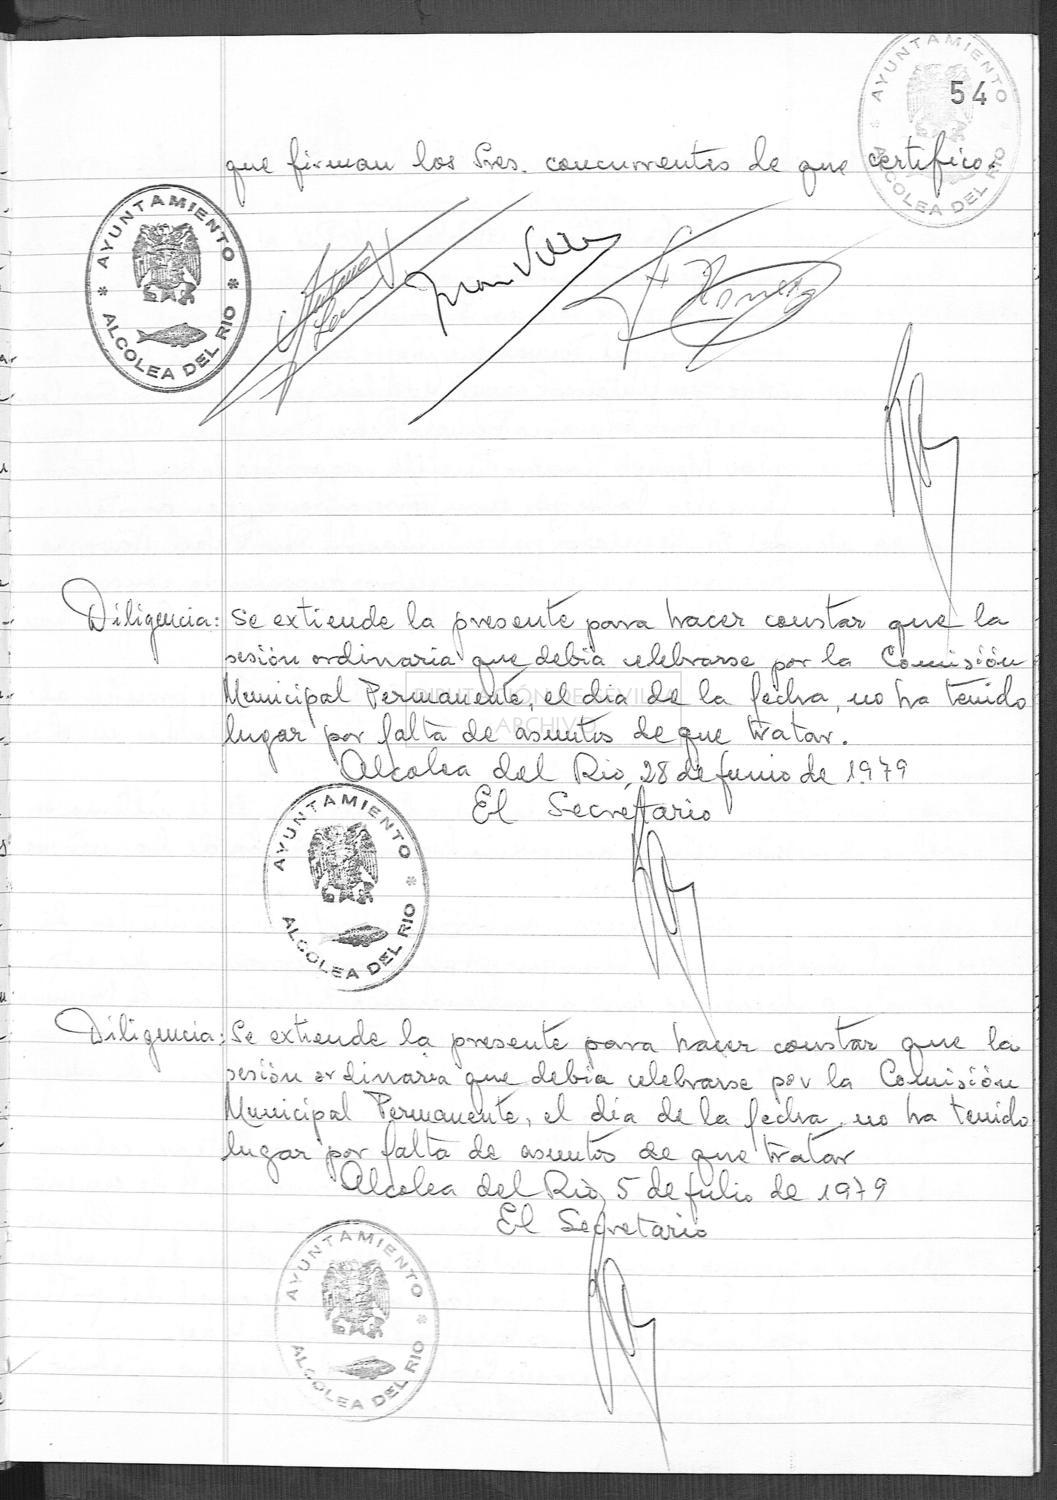 54
AYUNTAMIENTO
* ALCOLEA DEL RIO *
que firman los Sres. concurrentes de que certifico.
AYUNTAMIENTO
* ALCOLEA DEL RIO *
Juan Villa
Diligencia: Se extiende la presente para hacer constar que la
sesión ordinaria que debia celebrarse por la Comisión
Municipal Permanente, el dia de la fecha, no ha tenido
lugar por falta de asuntos de que tratar.
DIPUTACIÓN DE SEVILLA
ARCHIVO
Alcolea del Rio, 28 de junio de 1979
El Secretario
AYUNTAMIENTO
ALCOLEA DEL RIO *
Diligencia: Se extiende la presente para hacer constar que la
sesión ordinaria que debia celebrarse por la Comisión
Municipal Permanente, el dia de la fecha, no ha tenido
lugar por falta de asuntos de que tratar
Alcolea del Rio, 5 de julio de 1979
El Secretario
AYUNTAMIENTO
ALCOLEA DEL RIO *